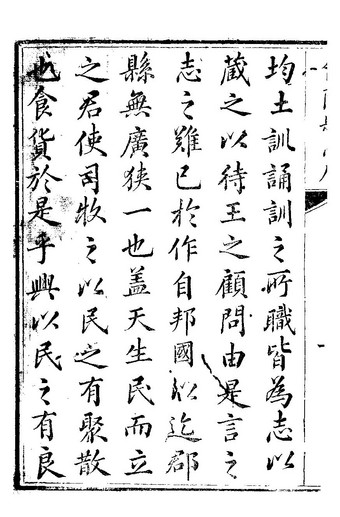 均土訓誦訓之所職皆為志以
蔵之以待王之顧問由是言之
志之難已於作自邦國以迄郡
縣無廣狹一也盖天生民而立
之君使司牧之以民之有聚散
也食貨於是乎興以民之有良